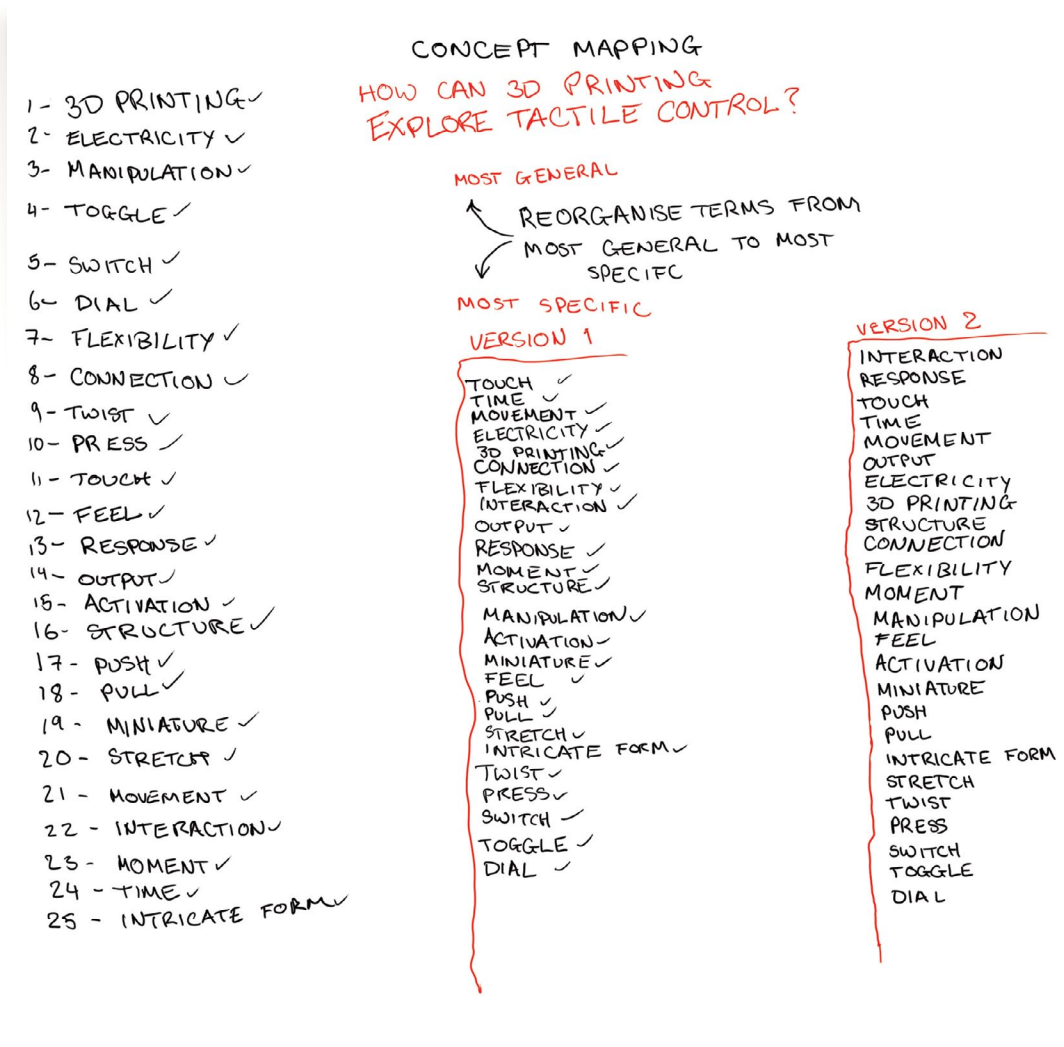 CONCEPT MAPPING
HOW CAN 3D PRINTING
EXPLORE TACTILE CONTROL?
1- 3D PRINTING✓
2- ELECTRICITY ✓
3- MANIPULATION✓
4- TOGGLE✓
5- SWITCH ✓
6- DIAL ✓
7- FLEXIBILITY ✓
8- CONNECTION ✓
9- TWIST ✓
10- PRESS ✓
11- TOUCH ✓
12- FEEL✓
13- RESPONSE✓
14- OUTPUT✓
15- ACTIVATION ✓
16- STRUCTURE✓
17- PUSH✓
18- PULL✓
19- MINIATURE ✓
20- STRETCH ✓
21- MOVEMENT ✓
22- INTERACTION✓
23- MOMENT✓
24- TIME✓
25- INTRICATE FORM✓
MOST GENERAL
REORGANISE TERMS FROM
MOST GENERAL TO MOST
SPECIFC
MOST SPECIFIC
VERSION 1
TOUCH ✓
TIME ✓
MOVEMENT ✓
ELECTRICITY✓
3D PRINTING✓
CONNECTION ✓
FLEXIBILITY✓
INTERACTION ✓
OUTPUT ✓
RESPONSE ✓
MOMENT✓
STRUCTURE✓
MANIPULATION✓
ACTIVATION✓
MINIATURE✓
FEEL ✓
PUSH ✓
PULL ✓
STRETCH✓
INTRICATE FORM✓
TWIST✓
PRESS✓
SWITCH ✓
TOGGLE ✓
DIAL ✓
VERSION 2
INTERACTION
RESPONSE
TOUCH
TIME
MOVEMENT
OUTPUT
ELECTRICITY
3D PRINTING
STRUCTURE
CONNECTION
FLEXIBILITY
MOMENT
MANIPULATION
FEEL
ACTIVATION
MINIATURE
PUSH
PULL
INTRICATE FORM
STRETCH
TWIST
PRESS
SWITCH
TOGGLE
DIAL